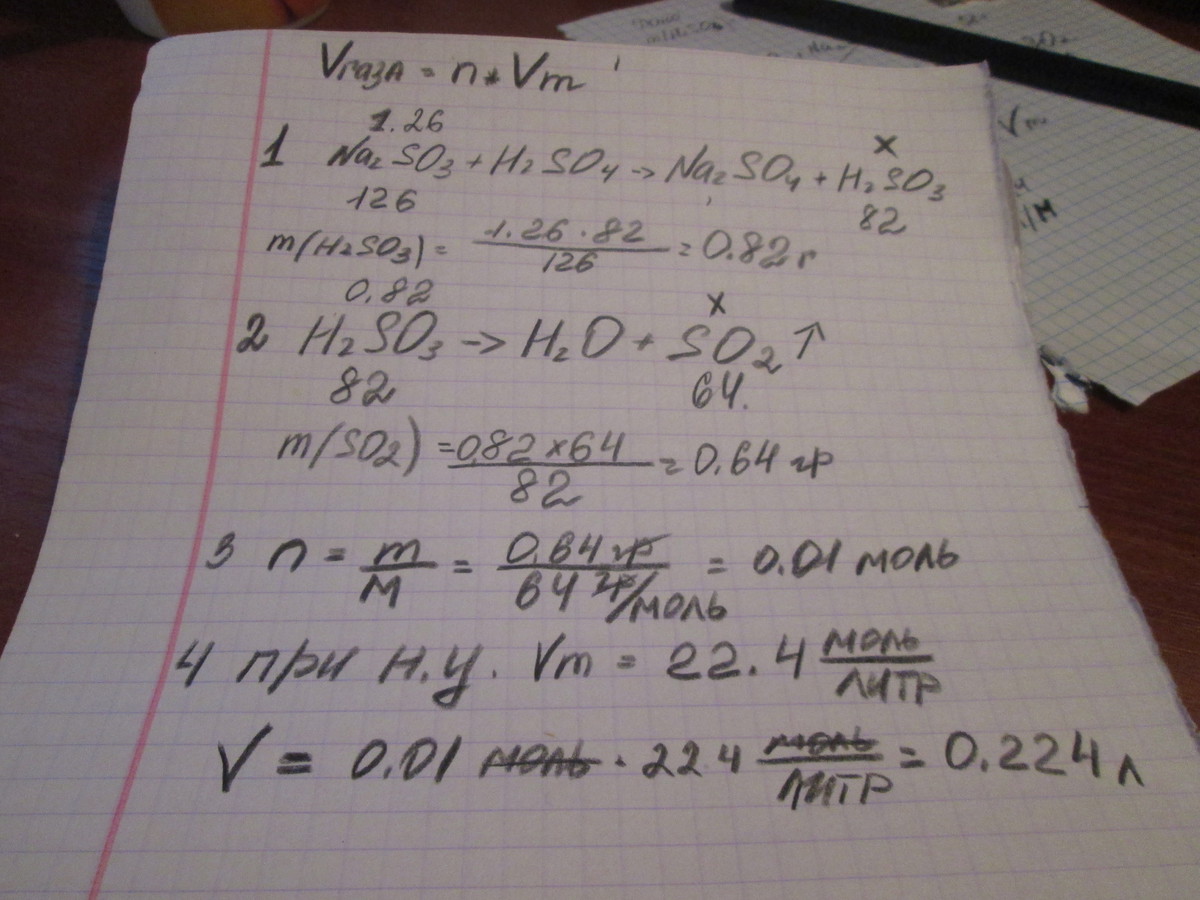 Vгаза = n * Vm
1.26 x
1 Na2SO3 + H2SO4 -> Na2SO4 + H2SO3
126 82
m(H2SO3) = 1.26 · 82 / 126 = 0.82 г
0,82 x
2 H2SO3 -> H2O + SO2 ↑
82 64.
m(SO2) = 0,82 x 64 / 82 = 0.64 гр
3 n = m / M = 0.64 гр / 64 гр/моль = 0.01 моль
4 при н.у. Vm = 22.4 моль / литр
V = 0.01 моль · 22 4 моль / литр = 0.224 л
Vm